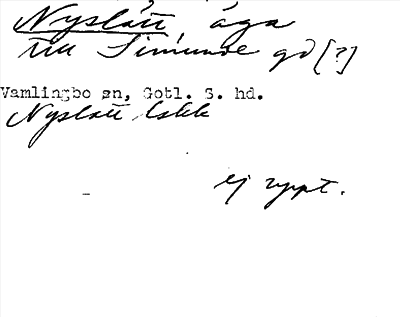 Nyslätt äga
till Simunde gd [?]
Vamlingbo sn, Gotl. S. hd.
Nyslätt
ej uppt.